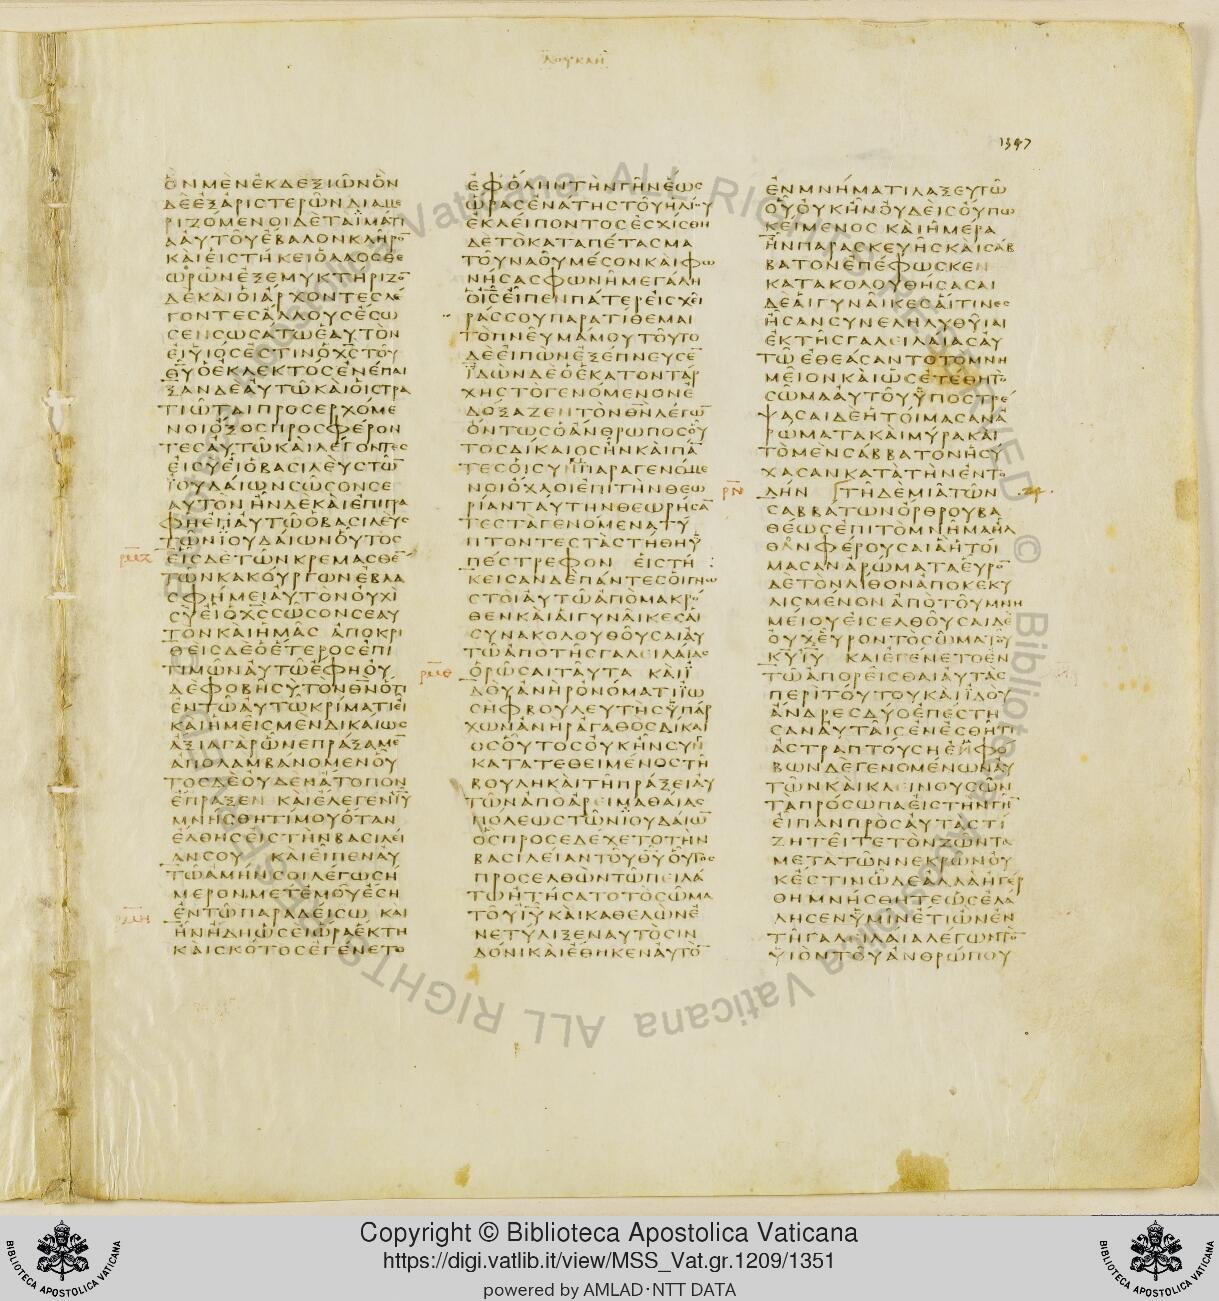 ΛΟΥΚΑΝ
1347
ΟΝΜΕΝΕΚΔΕΞΙΩΝΟΝ
ΔΕΕΞΑΡΙΣΤΕΡΩΝΔΙΑΜΕ
ΡΙΖΟΜΕΝΟΙΔΕΤΑΙΜΑΤΙ
ΑΑΥΤΟΥΕΒΑΛΟΝΚΛΗΡΟ̅
ΚΑΙΕΙΣΤΗΚΕΙΟΛΑΟΣΘΕ
ΩΡΩΝΕΞΕΜΥΚΤΗΡΙΖΟ̅
ΔΕΚΑΙΟΙΑΡΧΟΝΤΕΣΛΕ
ΓΟΝΤΕΣΑΛΛΟΥΣΕΣΩ
ΣΕΝΣΩΣΑΤΩΕΑΥΤΟΝ
ΕΙΥΙΟΣΕΣΤΙΝΟΧ̅Σ̅ΤΟΥ
Θ̅Υ̅ΟΕΚΛΕΚΤΟΣΕΝΕΠΑΙ
ΞΑΝΔΕΑΥΤΩΚΑΙΟΙΣΤΡΑ
ΤΙΩΤΑΙΠΡΟΣΕΡΧΟΜΕ
ΝΟΙΟΞΟΣΠΡΟΣΦΕΡΟΝ
ΤΕΣΑΥΤΩΚΑΙΛΕΓΟΝΤΕΣ
ΕΙΣΥΕΙΟΒΑΣΙΛΕΥΣΤΩ̅
ΙΟΥΔΑΙΩΝΣΩΣΟΝΣΕ
ΑΥΤΟΝΗΝΔΕΚΑΙΕΠΙΓΡΑ
ΦΗΕΠΑΥΤΩΟΒΑΣΙΛΕΥΣ
ΤΩΝΙΟΥΔΑΙΩΝΟΥΤΟΣ
ΕΙΣΔΕΤΩΝΚΡΕΜΑΣΘΕ̅
ΤΩΝΚΑΚΟΥΡΓΩΝΕΒΛΑ
ΣΦΗΜΕΙΑΥΤΟΝΟΥΧΙ
ΣΥΕΙΟΧ̅Σ̅ΣΩΣΟΝΣΕΑΥ
ΤΟΝΚΑΙΗΜΑΣ ΑΠΟΚΡΙ
ΘΕΙΣΔΕΟΕΤΕΡΟΣΕΠΙ
ΤΙΜΩΝΑΥΤΩΕΦΗΟΥ
ΔΕΦΟΒΗΣΥΤΟΝΘ̅Ν̅ΟΤΙ
ΕΝΤΩΑΥΤΩΚΡΙΜΑΤΙΕΙ
ΚΑΙΗΜΕΙΣΜΕΝΔΙΚΑΙΩΣ
ΑΞΙΑΓΑΡΩΝΕΠΡΑΞΑΜΕ̅
ΑΠΟΛΑΜΒΑΝΟΜΕΝΟΥ
ΤΟΣΔΕΟΥΔΕΝΑΤΟΠΟΝ
ΕΠΡΑΞΕΝ ΚΑΙΕΛΕΓΕΝΙ̅Υ̅
ΜΝΗΣΘΗΤΙΜΟΥΟΤΑΝ
ΕΛΘΗΣΕΙΣΤΗΝΒΑΣΙΛΕΙ
ΑΝΣΟΥ ΚΑΙΕΙΠΕΝΑΥ
ΤΩΑΜΗΝΣΟΙΛΕΓΩΣΗ
ΜΕΡΟΝΜΕΤΕΜΟΥΕΣΗ
ΕΝΤΩΠΑΡΑΔΕΙΣΩ ΚΑΙ
ΗΝΗΔΗΩΣΕΙΩΡΑΕΚΤΗ
ΚΑΙΣΚΟΤΟΣΕΓΕΝΕΤΟ
ΕΦΟΛΗΝΤΗΝΓΗΝΕΩΣ
ΩΡΑΣΕΝΑΤΗΣΤΟΥΗΛΙΟΥ
ΕΚΛΕΙΠΟΝΤΟΣΕΣΧΙΣΘΗ
ΔΕΤΟΚΑΤΑΠΕΤΑΣΜΑ
ΤΟΥΝΑΟΥΜΕΣΟΝΚΑΙΦΩ
ΝΗΣΑΣΦΩΝΗΜΕΓΑΛΗ
ΟΙ̅Σ̅ΕΙΠΕΝΠΑΤΕΡΕΙΣΧΕΙ
ΡΑΣΣΟΥΠΑΡΑΤΙΘΕΜΑΙ
ΤΟΠΝΕΥΜΑΜΟΥΤΟΥΤΟ
ΔΕΕΙΠΩΝΕΞΕΠΝΕΥΣΕ̅
ΙΔΩΝΔΕΟΕΚΑΤΟΝΤΑΡ
ΧΗΣΤΟΓΕΝΟΜΕΝΟΝΕ
ΔΟΞΑΖΕΝΤΟΝΘ̅Ν̅ΛΕΓΩ̅
ΟΝΤΩΣΟΑΝΘΡΩΠΟΣΟΥ
ΤΟΣΔΙΚΑΙΟΣΗΝΚΑΙΠΑ̅
ΤΕΣΟΙΣΥΝΠΑΡΑΓΕΝΟΜΕ
ΝΟΙΟΧΛΟΙΕΠΙΤΗΝΘΕΩ
ΡΙΑΝΤΑΥΤΗΝΘΕΩΡΗΣΑ̅
ΤΕΣΤΑΓΕΝΟΜΕΝΑΤΥ
ΠΤΟΝΤΕΣΤΑΣΤΗΘΗΥ
ΠΕΣΤΡΕΦΟΝ ΕΙΣΤΗ
ΚΕΙΣΑΝΔΕΠΑΝΤΕΣΟΙΓΝΩ
ΣΤΟΙΑΥΤΩΑΠΟΜΑΚΡΟ
ΘΕΝΚΑΙΑΙΓΥΝΑΙΚΕΣΑΙ
ΣΥΝΑΚΟΛΟΥΘΟΥΣΑΙΑΥ
ΤΩΑΠΟΤΗΣΓΑΛΕΙΛΑΙΑΣ
ΟΡΩΣΑΙΤΑΥΤΑ ΚΑΙΙ
ΔΟΥΑΝΗΡΟΝΟΜΑΤΙΙΩ
ΣΗΦΒΟΥΛΕΥΤΗΣΥΠΑΡ
ΧΩΝΑΝΗΡΑΓΑΘΟΣΔΙΚΑΙ
ΟΣΟΥΤΟΣΟΥΚΗΝΣΥΝ
ΚΑΤΑΤΕΘΕΙΜΕΝΟΣΤΗ
ΒΟΥΛΗΚΑΙΤΗΠΡΑΞΕΙΑΥ
ΤΩΝΑΠΟΑΡΕΙΜΑΘΑΙΑΣ
ΠΟΛΕΩΣΤΩΝΙΟΥΔΑΙΩ̅
ΟΣΠΡΟΣΕΔΕΧΕΤΟΤΗΝ
ΒΑΣΙΛΕΙΑΝΤΟΥΘ̅Υ̅ΟΥΤΟΣ
ΠΡΟΣΕΛΘΩΝΤΩΠΕΙΛΑ
ΤΩΗΤΗΣΑΤΟΤΟΣΩΜΑ
ΤΟΥΙ̅Υ̅ΚΑΙΚΑΘΕΛΩΝΕ
ΝΕΤΥΛΙΞΕΝΑΥΤΟΣΙΝ
ΔΟΝΙΚΑΙΕΘΗΚΕΝΑΥΤΟ̅
ΕΝΜΝΗΜΑΤΙΛΑΞΕΥΤΩ
ΟΥΟΥΚΗΝΟΥΔΕΙΣΟΥΠΩ
ΚΕΙΜΕΝΟΣ ΚΑΙΗΜΕΡΑ
ΗΝΠΑΡΑΣΚΕΥΗΣΚΑΙΣΑΒ
ΒΑΤΟΝΕΠΕΦΩΣΚΕΝ
ΚΑΤΑΚΟΛΟΥΘΗΣΑΣΑΙ
ΔΕΑΙΓΥΝΑΙΚΕΣΑΙΤΙΝΕΣ
ΗΣΑΝΣΥΝΕΛΗΛΥΘΥΙΑΙ
ΕΚΤΗΣΓΑΛΕΙΛΑΙΑΣΑΥ
ΤΩΕΘΕΑΣΑΝΤΟΤΟΜΝΗ
ΜΕΙΟΝΚΑΙΩΣΕΤΕΘΗΤΟ
ΣΩΜΑΑΥΤΟΥΥΠΟΣΤΡΕ
ΨΑΣΑΙΔΕΗΤΟΙΜΑΣΑΝΑ
ΡΩΜΑΤΑΚΑΙΜΥΡΑΚΑΙ
ΤΟΜΕΝΣΑΒΒΑΤΟΝΗΣΥ
ΧΑΣΑΝΚΑΤΑΤΗΝΕΝΤΟ
ΛΗΝ ΤΗΔΕΜΙΑΤΩΝ
ΣΑΒΒΑΤΩΝΟΡΘΡΟΥΒΑ
ΘΕΩΣΕΠΙΤΟΜΝΗΜΑΗΛ
ΘΑΝΦΕΡΟΥΣΑΙΑΗΤΟΙ
ΜΑΣΑΝΑΡΩΜΑΤΑΕΥΡΟ̅
ΔΕΤΟΝΛΙΘΟΝΑΠΟΚΕΚΥ
ΛΙΣΜΕΝΟΝΑΠΟΤΟΥΜΝΗ
ΜΕΙΟΥΕΙΣΕΛΘΟΥΣΑΙΔΕ
ΟΥΧΕΥΡΟΝΤΟΣΩΜΑΤΟΥ
Κ̅Υ̅Ι̅Υ̅ ΚΑΙΕΓΕΝΕΤΟΕΝ
ΤΩΑΠΟΡΕΙΣΘΑΙΑΥΤΑΣ
ΠΕΡΙΤΟΥΤΟΥΚΑΙΙΔΟΥ
ΑΝΔΡΕΣΔΥΟΕΠΕΣΤΗ
ΣΑΝΑΥΤΑΙΣΕΝΕΣΘΗΤΙ
ΑΣΤΡΑΠΤΟΥΣΗΕΜΦΟ
ΒΩΝΔΕΓΕΝΟΜΕΝΩΝΑΥ
ΤΩΝΚΑΙΚΛΕΙΝΟΥΣΩΝ
ΤΑΠΡΟΣΩΠΑΕΙΣΤΗΝΓΗ̅
ΕΙΠΑΝΠΡΟΣΑΥΤΑΣΤΙ
ΖΗΤΕΙΤΕΤΟΝΖΩΝΤΑ
ΜΕΤΑΤΩΝΝΕΚΡΩΝΟΥ
ΚΕΣΤΙΝΩΔΕΑΛΛΑΗΓΕΡ
ΘΗΜΝΗΣΘΗΤΕΩΣΕΛΑ
ΛΗΣΕΝΥΜΙΝΕΤΙΩΝΕΝ
ΤΗΓΑΛΕΙΛΑΙΑΛΕΓΩΝΤΟ̅
ΥΙΟΝΤΟΥΑΝΘΡΩΠΟΥ
Copyright © Biblioteca Apostolica Vaticana
https://digi.vatlib.it/view/MSS_Vat.gr.1209/1351
powered by AMLAD·NTT DATA
BIBLIOTECA APOSTOLICA VATICANA
BIBLIOTECA APOSTOLICA VATICANA